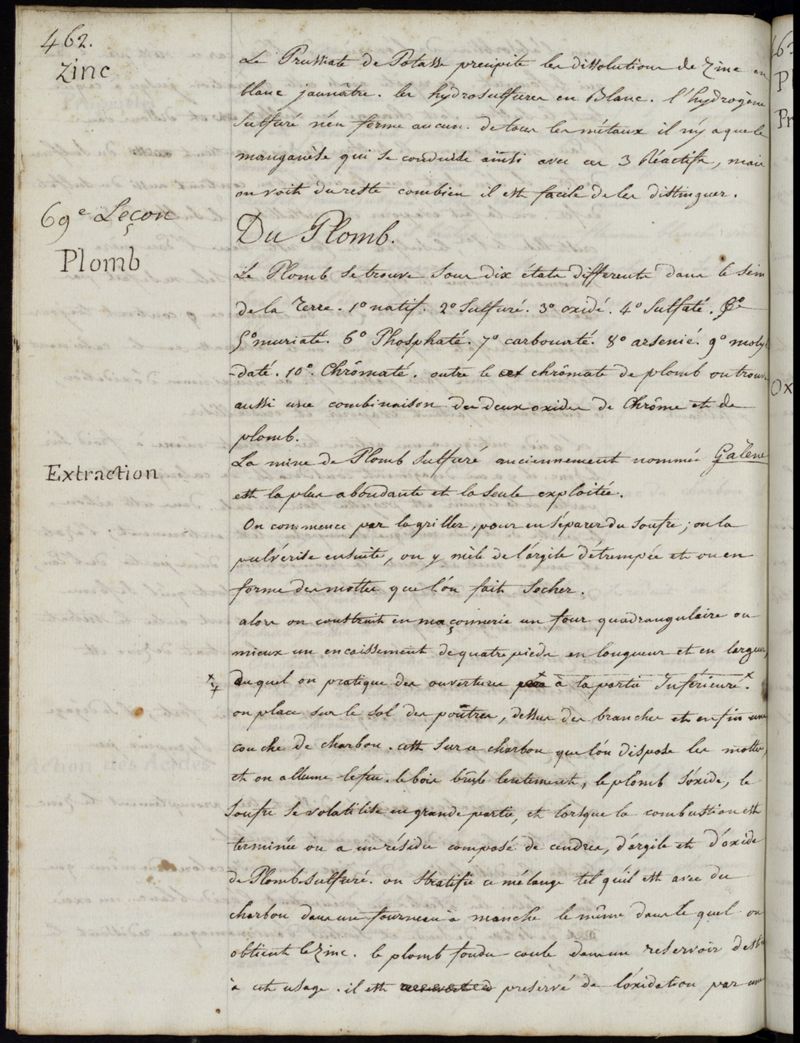 462.
Zinc
Le Prussiate de Potasse precipite les dissolutions de Zinc en
blanc jaunâtre. les hydrosulfures en Blanc. l'hydrogène
sulfuré n'en forme aucun. de tous les métaux il n'y a que le
manganèse qui se conduise ainsi avec ces 3 Réactifs, mais
on voit du reste combien il est facile de les distinguer.
69e Leçon
Plomb
Du Plomb.
Le Plomb se trouve sous dix états differents dans le sein
de la Terre. 1o natif. 2o Sulfuré. 3o oxidé. 4o Sulfaté.
5o muriaté. 6o Phosphaté. 7o carbonaté. 8o arsenié. 9o molyb
-daté. 10o. Chrômaté. outre le chrômate de plomb on trouve
aussi une combinaison des deux oxides de Chrôme et de
plomb.
Extraction
La mine de Plomb sulfuré anciennement nommée Galene
est la plus abondante et la seule exploitée.
On commence par la griller, pour en séparer du soufre; on la
pulvérise ensuite, on y mêle de l'argile détrempée et on en
forme des mottes que l'on fait secher.
alors on construit en maçonnerie un four quadrangulaire ou
mieux un encaissement de quatre pieds en longueur et en largeur,
duquel on pratique des ouvertures à la partie Inférieure.
on place sur le sol des poûtres, dessus des branches et enfin une
couche de charbon. c'est sur ce charbon que l'on dispose les mottes
et on allume le feu. le bois brûle lentement, le plomb s'oxide, le
soufre se volatilise en grande partie et lorsque la combustion est
terminée on a un résidu composé de cendres, d'argile et d'oxide
de Plomb sulfuré. on stratifie ce mélange tel qu'il est avec du
charbon dans un fourneau à manche le même dans le quel on
obtient le Zinc. le plomb fondu coule dans un reservoir destiné
à cet usage. il est preservé de l'oxidation par une